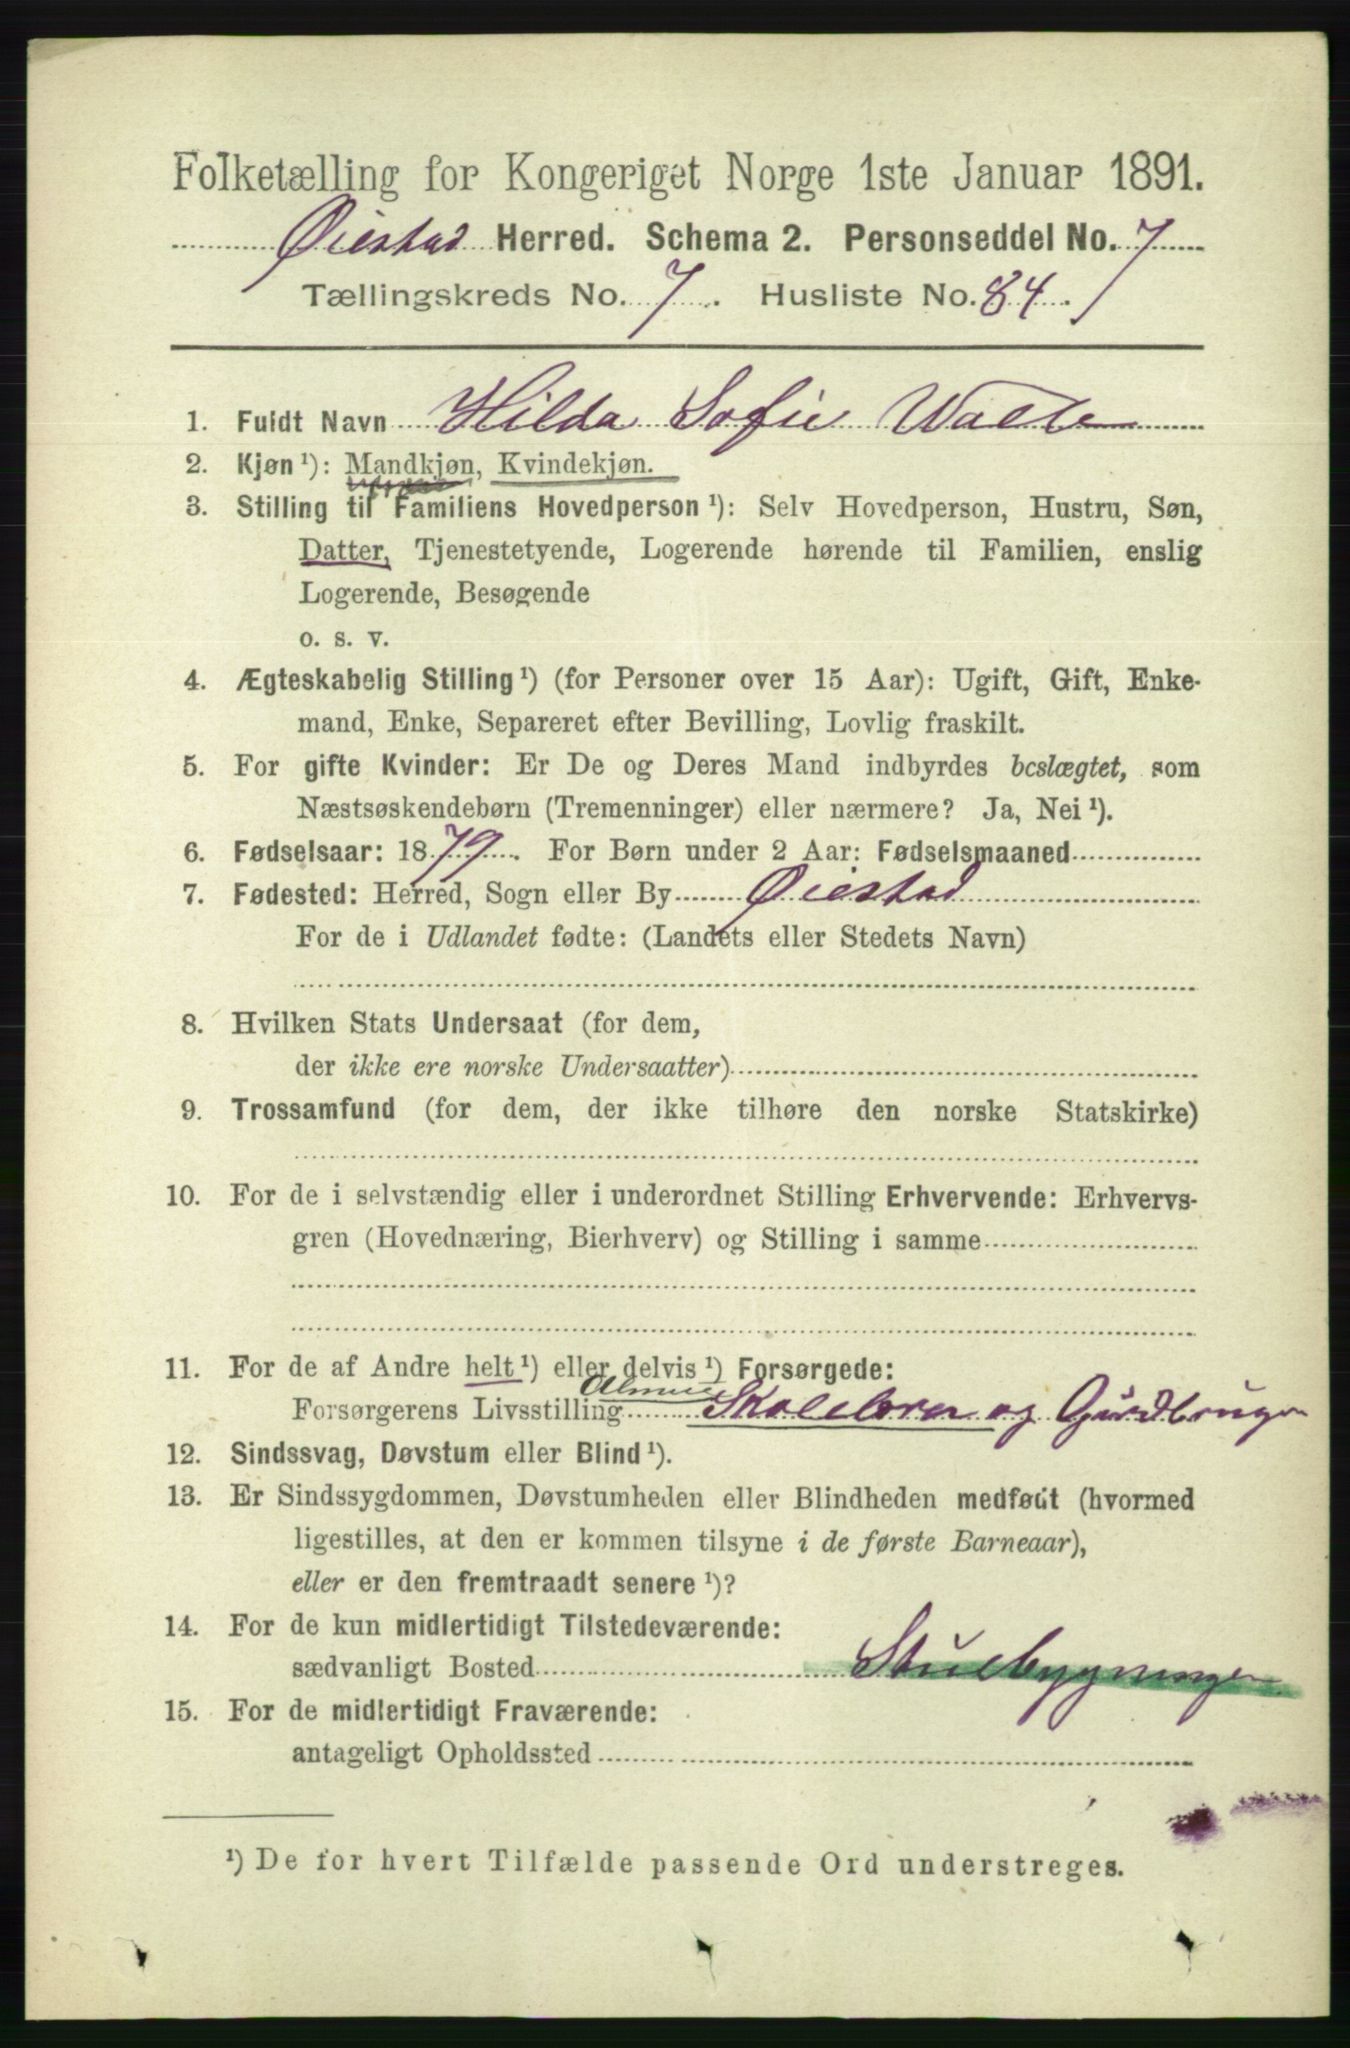 Folketælling for Kongeriget Norge 1ste Januar 1891.
Øiestad Herred. Schema 2. Personseddel No. 7
Tællingskreds No. 7. Husliste No. 84.
1. Fuldt Navn Hilda Sofie
2. Kjøn ¹): Mandkjøn, Kvindekjøn.
3. Stilling til Familiens Hovedperson ¹): Selv Hovedperson, Hustru, Søn,
Datter, Tjenestetyende, Logerende hørende til Familien, enslig
Logerende, Besøgende
o. s. v.
4. Ægteskabelig Stilling ¹) (for Personer over 15 Aar): Ugift, Gift, Enke-
mand, Enke, Separeret efter Bevilling, Lovlig fraskilt.
5. For gifte Kvinder: Er De og Deres Mand indbyrdes beslægtet, som
Næstsøskendebørn (Tremenninger) eller nærmere? Ja, Nei ¹).
6. Fødselsaar: 1879. For Børn under 2 Aar: Fødselsmaaned
7. Fødested: Herred, Sogn eller By Øiestad
For de i Udlandet fødte: (Landets eller Stedets Navn)
8. Hvilken Stats Undersaat (for dem,
der ikke ere norske Undersaatter)
9. Trossamfund (for dem, der ikke tilhøre den norske Statskirke)
10. For de i selvstændig eller i underordnet Stilling Erhvervende: Erhvervs-
gren (Hovednæring, Bierhverv) og Stilling i samme
11. For de af Andre helt ¹) eller delvis ¹) Forsørgede:
Almue
Forsørgerens Livsstilling Skolelærer og Gårdbruger
12. Sindssvag, Døvstum eller Blind ¹).
13. Er Sindssygdommen, Døvstumheden eller Blindheden medfødt (hvormed
ligestilles, at den er kommen tilsyne i de første Barneaar),
eller er den fremtraadt senere ¹)?
14. For de kun midlertidigt Tilstedeværende:
sædvanligt Bosted Stuebygningen
15. For de midlertidigt Fraværende:
antageligt Opholdssted
¹) De for hvert Tilfælde passende Ord understreges.